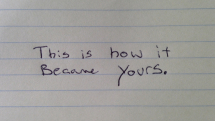 This is how it
Became yours.